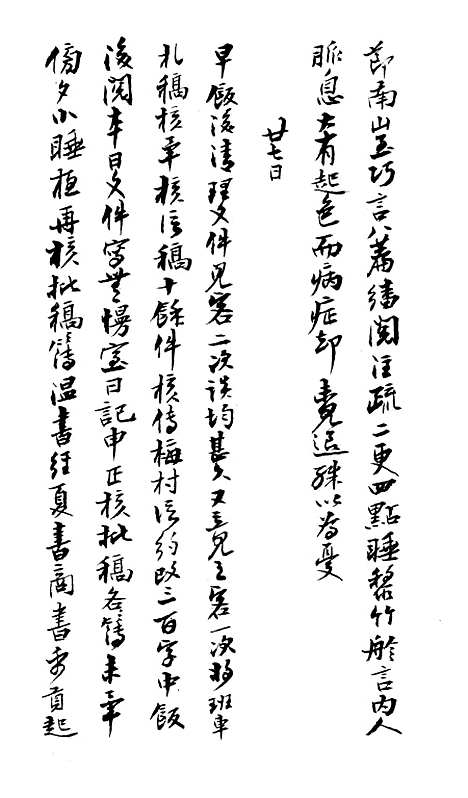 節南山至巧言八篇繙閱注疏二更四點睡黎竹舲言內人
脈息大有起色而病症却未見退殊以為憂
廿七日
早飯後清理文件見客二次談均甚久又立見之客一次將班車
札稿核畢核信稿十餘件核傅梅村信約改三百字中飯
後閱本日文件寫無慢室日記申正核批稿各簿未畢
傍夕小睡夜再核批稿簿溫書經夏書商書二更後